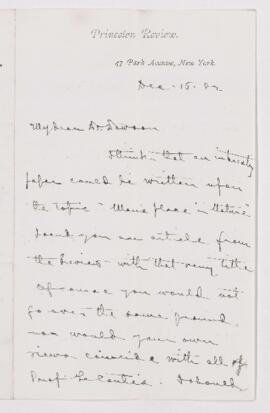 Princeton Review.
47 Park Avenue, New York
Dec. 15. 82.
My dear Dr. Dawson
I think that an interesting
paper could be written upon
the topic "Man's place in Nature"
I send you an article from
the Review with that very title
Of course you would not
go over the same ground
nor would your own
views coincide with all of
Prof Le Conte's. I should